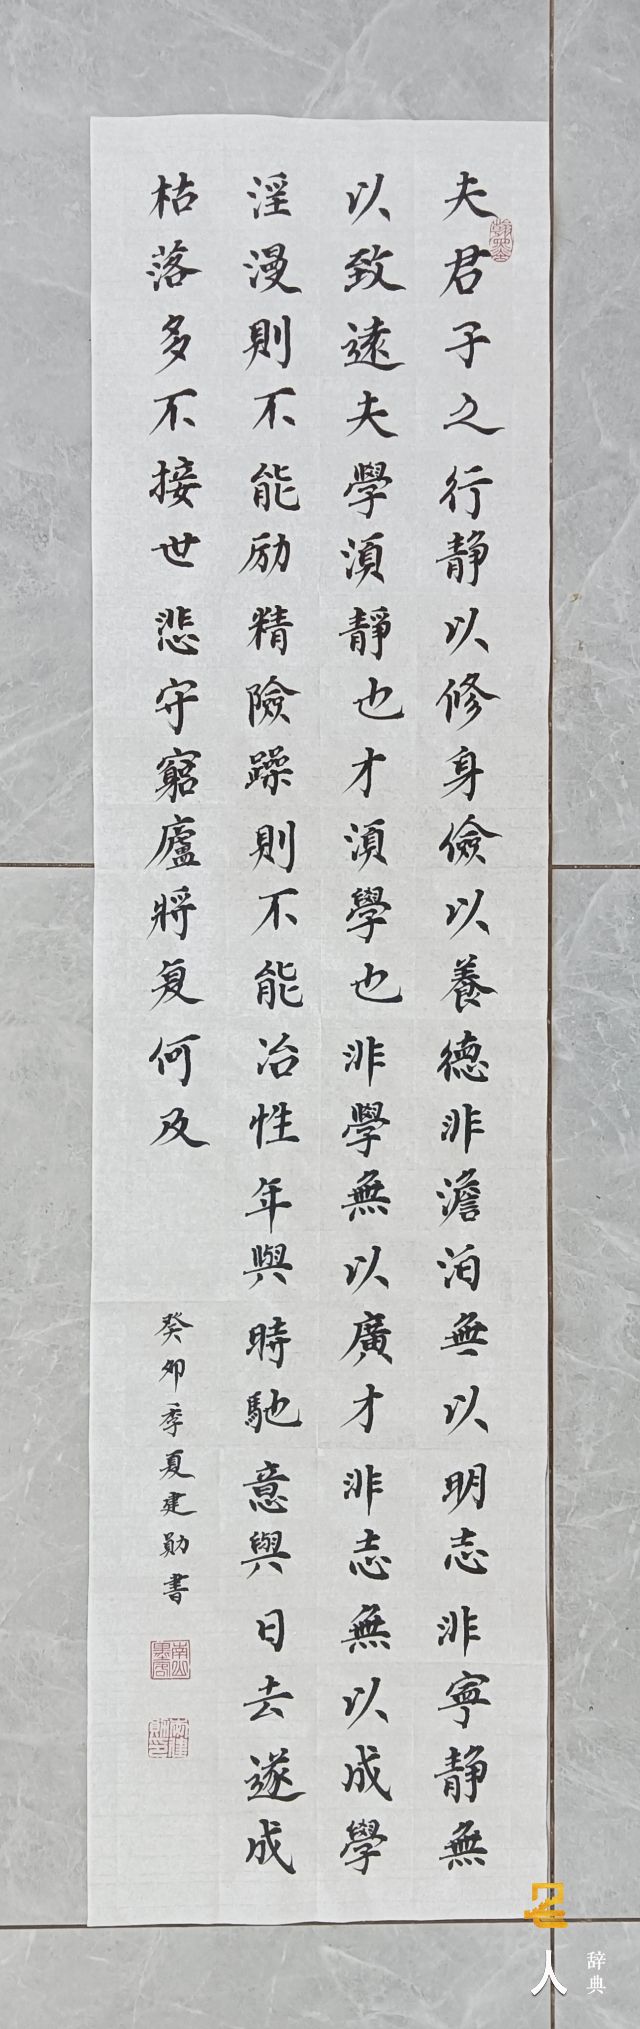 夫君子之行静以修身儉以養德非澹泊無以明志非寧静無
以致遠夫學湏靜也才湏學也非學無以廣才非志無以成學
淫漫則不能励精險躁則不能冶性年與時馳意與日去遂成
枯落多不接世悲守窮廬將复何及
癸卯季夏建勋書
人
辞典